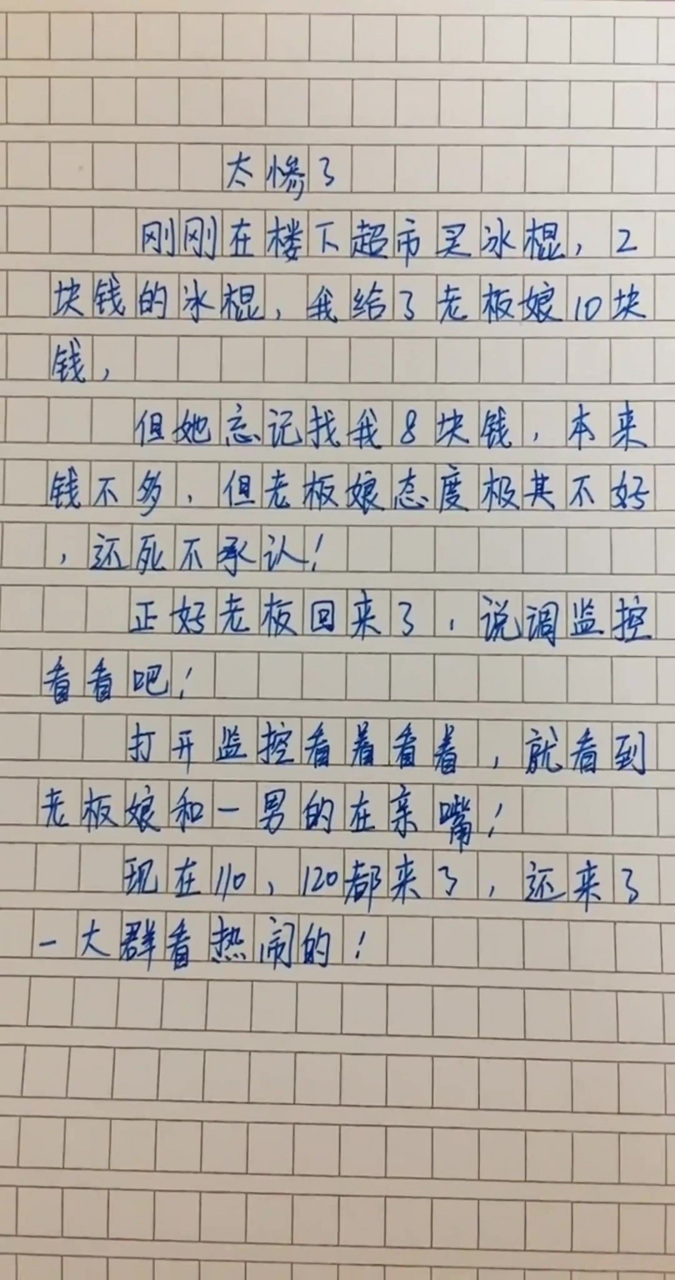 太惨了
刚刚在楼下超市买冰棍，2
块钱的冰棍，我给了老板娘10块
钱，
但她忘记找我8块钱，本来
钱不多，但老板娘态度极其不好
，还死不承认！
正好老板回来了，说调监控
看看吧！
打开监控看着看着，就看到
老板娘和一男的在亲嘴！
现在110，120都来了，还来了
一大群看热闹的！